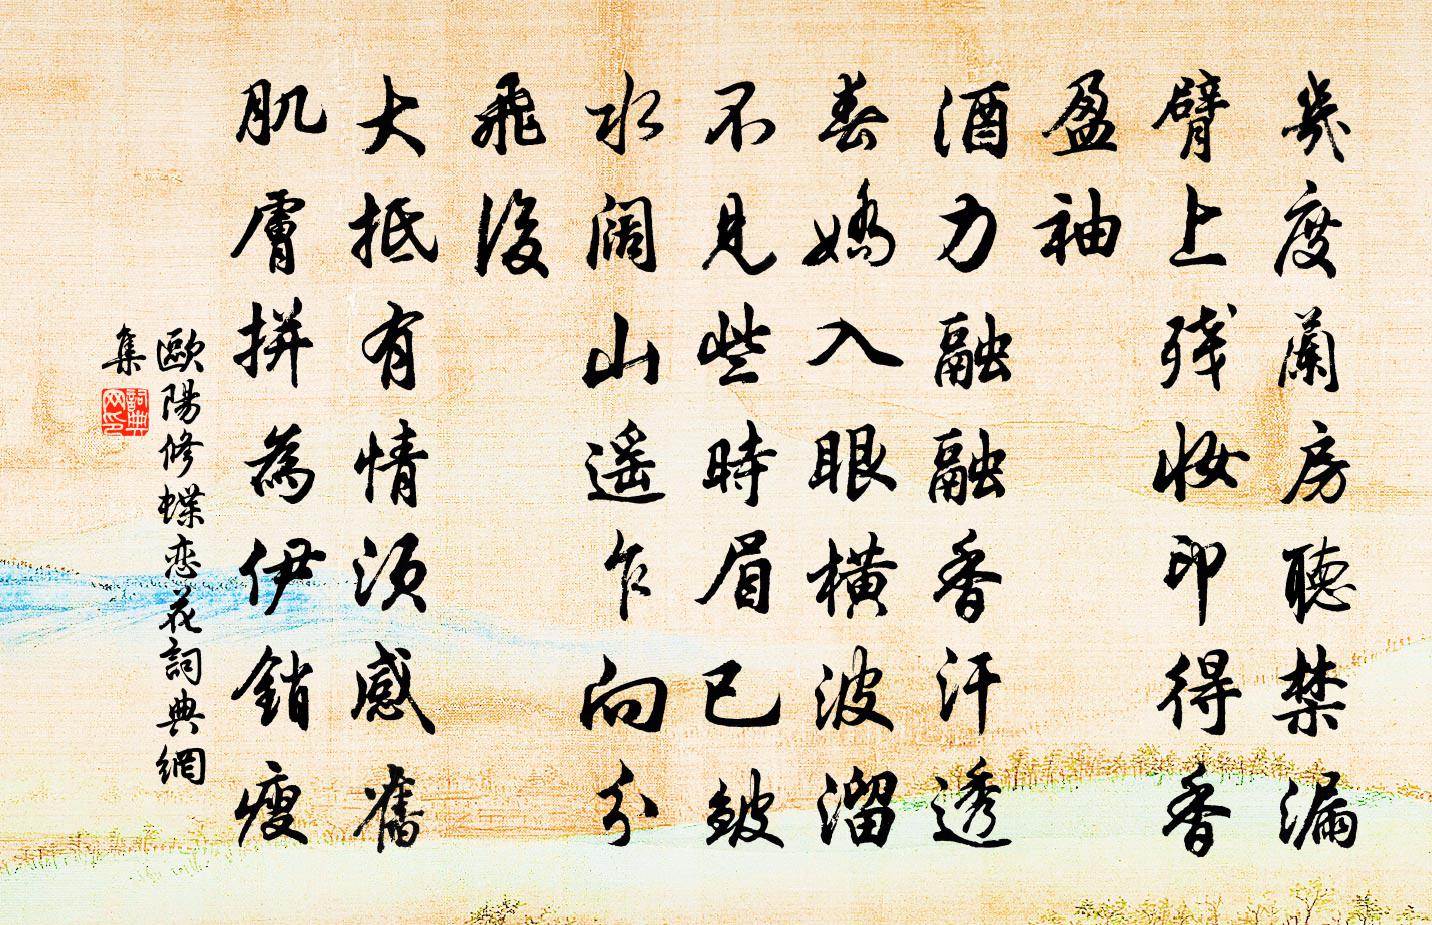 幾度蘭房聽禁漏
臂上残妝印得香
盈袖
酒力融融香汗透
春嬌入眼橫波溜
不見些時眉已皺
水阔山遥乍向分
飛後
大抵有情須感舊
肌膚拼為伊銷瘦
歐陽修蝶恋花詞典網
集
詞典
网印